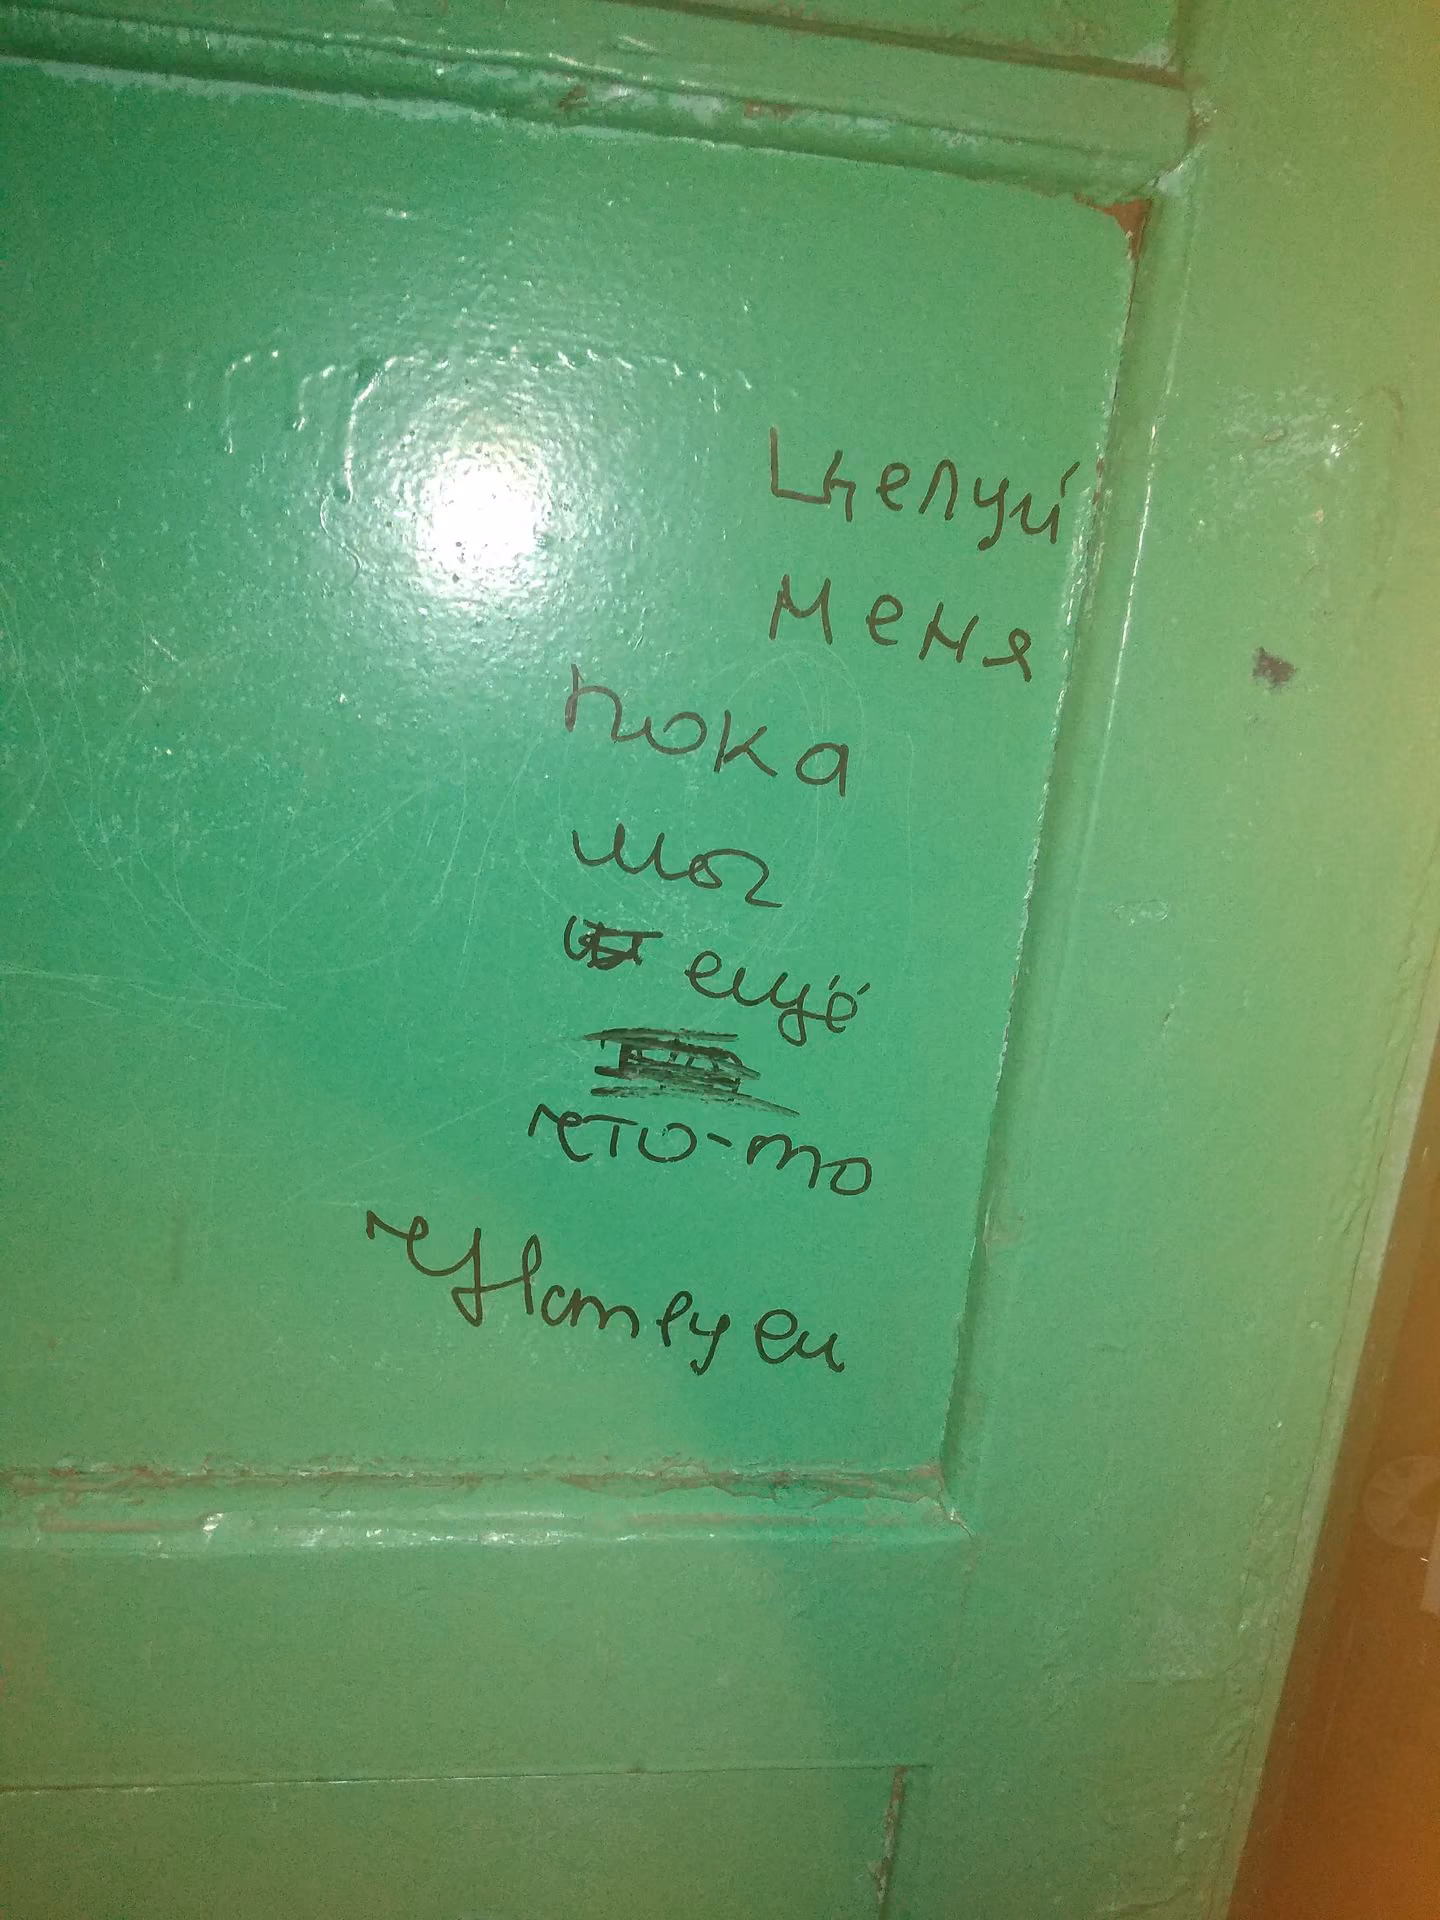 целуй
меня
пока
мозг
ещё
что-то
чувствует